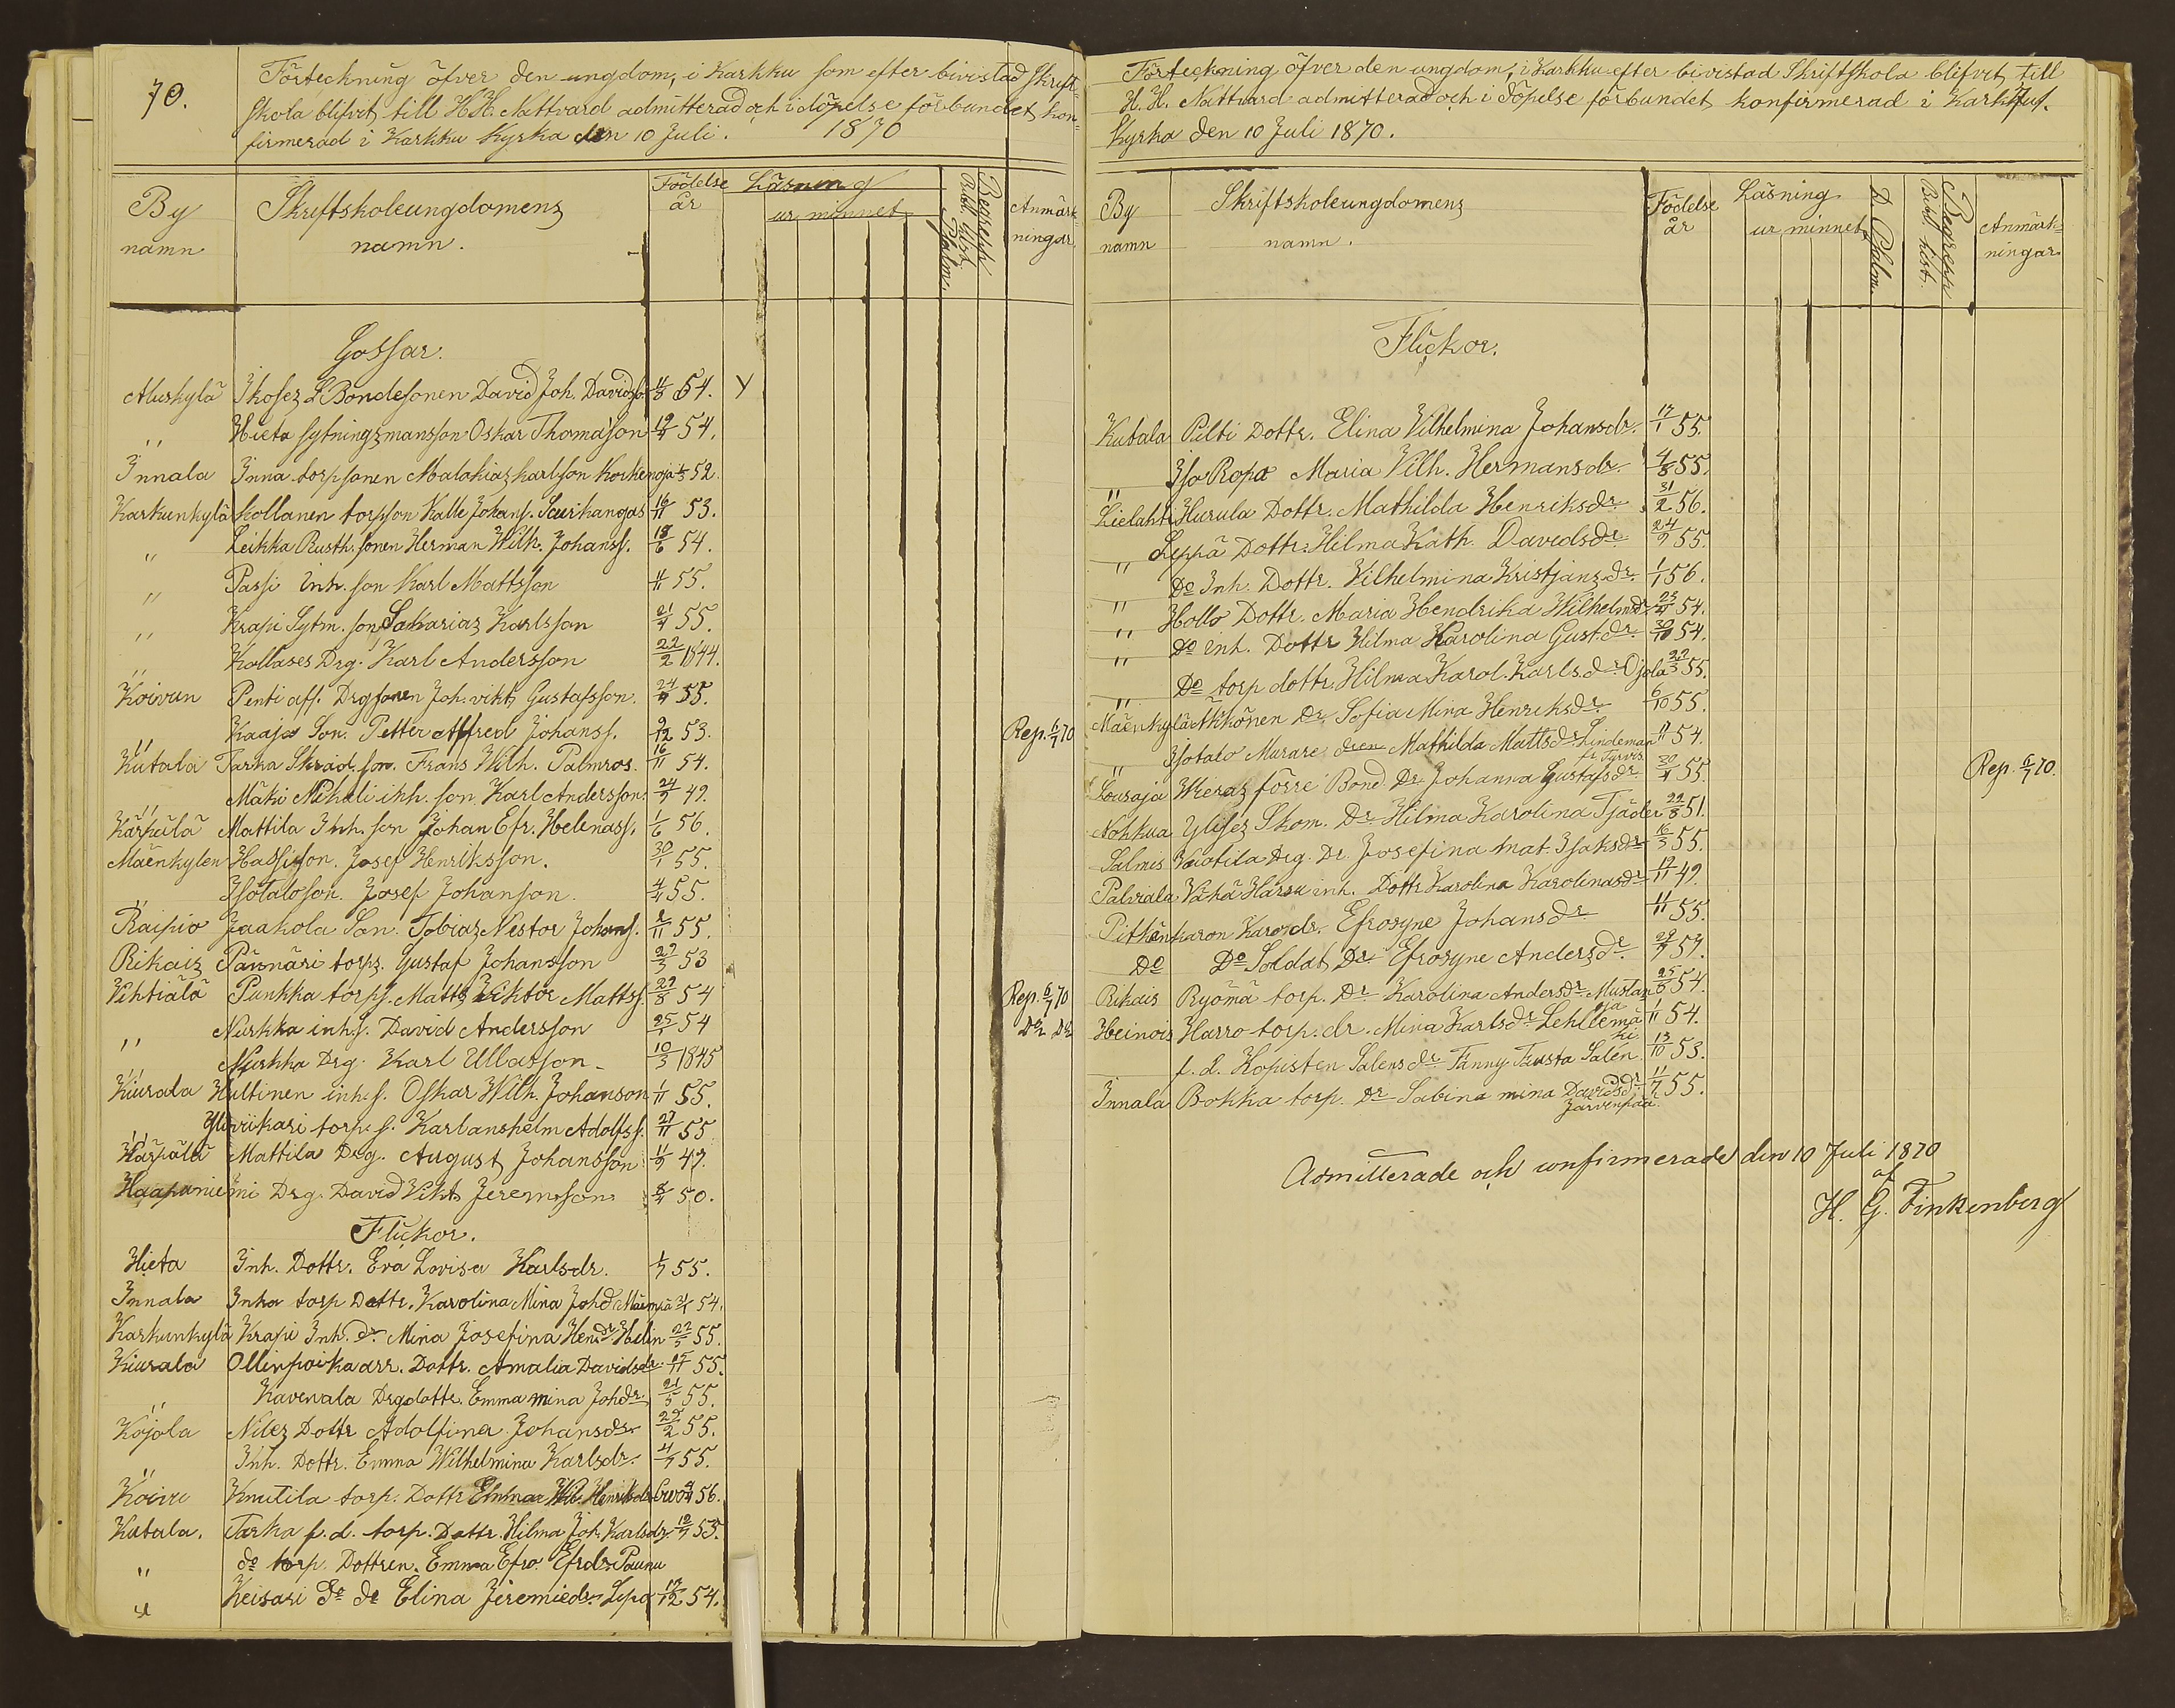 70.
Förteckning öfver den ungdom, i Karkku som efter bivistad Skrift-
skola blifvit till H.H. Nattvard admitterad och i döpelse förbundet kon-
firmerad i Karkku kyrka den 10 Juli. 1870
By namn
Skriftskoleungdomens namn.
Födelse år
Läsning
ur minnet
Psalm.
Bibl. hist.
Begrepp
Anmärk-
ningar
Gossar.
Aluskylä Bondesonen David Joh. Davidss. 54. Y
,, Hieta sytningsmansson Oskar Thomasson 54.
Innala Inna torpsonen Malakias Karlsson 52.
Karkunkylä Kollanen torpson Kalle Johans. 16/11 53.
,, Leikka Rusth. sonen Herman Wilh. Johanss. 18/6 54.
,, Passi inh. son Karl Mattsson 55.
,, Krapi Sytm. son Sakarias Karlsson 55.
,, Kollases Drg. Karl Andersson 22/2 1844.
Koivun Penti aff. Drgsonen Joh. vikt. Gustafsson. 55.
,, Kaaja Son. Petter Alfred Johanss. 9/12 53. Rep. 6/7 70
Kutala Tarka Skräd. son. Frans Wilh. Palmros. 16/11 54.
,, Mäki Nikuli inh. son Karl Andersson. 49.
Kärpälä Mattila Inh. son Johan Efr. Helenass. 1/6 56.
Mäenkylen Hassi son. Josef Henriksson. 30/1 55.
,, Isotalo son. Josef Johanson. 55.
Raipio Jaakola Son. Tobias Nestor Johans. 55.
Rikais Pännäri torps. Gustaf Johansson 53
Vihtiälä Punkka torps. Matts Viktor Matts. 54 Rep. 6/7 70
,, Nurkka inh. s. David Andersson 54 Do Do
,, Nurkka Drg. Karl Ullasson 10/3 1845
Kiurala Hultinen inh. s. Oskar Wilh. Johanson 1/11 55.
,, torp. s. Karl anshelm Adolfss. 55
Kärpälä Mattila Drg. August Johansson 49.
Haapaniemi Drg. David Vikt. Jeremsson 50.
Flickor.
Hieta Inh. Dottr. Eva Lovisa Karlsdr. 55.
Innala Inha torp Dottr. Karolina Mina Johd. 54.
Karkunkylä Krapi Inh. dr. Mina Josefina Hendr. Helin 55.
Kiurala Ollinpoika arr. Dottr. Amalia Davidsdr. 55.
,, Kavenala Drgdottr. Emma mina Johdr. 21/5 55.
Kojola Niles Dottr Adolfina Johansdr 55.
,, Inh. Dottr. Emma Wilhelmina Karlsdr. 55.
Koivu Knutila torp. Dottr Emma Wil. Henriksdr 56.
Kutala. Tarka f.d. torp. Dottr. Hilma Joh. Karlsdr. 53.
,, do torp. Dottren. Emma Efro. Efrdr. Paunu
,, Keisari do do Elina Jeremiedr. 54.
Förteckning öfver den ungdom, i Karkku efter bivistad Skriftskola blifvit till
H. H. Nattvard admitterad och i döpelse förbundet konfirmerad i Karkku
Kyrka den 10 Juli 1870.
By namn
Skriftskoleungdomens namn.
Födelse år
Läsning
ur minnet
D. Psalm.
Bibl. hist.
Begrepp
Anmärk-
ningar
Flickor.
Kutala Pilti Dottr. Elina Vilhelmina Johansdr. 17/1 55.
,, Iso Ropa Maria Vilh. Hermansdr 55.
Lielahti Hurula Dottr. Mathilda Henriksdr 56.
,, Leppä Dottr. Hilma Kath. Davidsdr 55.
,, Do Inh. Dottr. Vilhelmina Kristjansdr. 1/1 56.
,, Hollo Dottr. Maria Hendrika Wilhelmdr 54.
,, Do inh. Dottr Hilma Karolina Gust.dr. 30/10 54.
,, Do torp dottr. Hilma Karol. Karlsdr. Ojala 55.
Mäenkylä Akkönen Dr. Sofia Mina Henriksdr. 6/10 55.
,, Isotalo Murare dren Mathilda Mattsdr Lindeman 54.
fr. Tyrvis
Lousaja Wieras förre Bond Dr. Johanna Gustafsdr 55. Rep. 6/7 70.
Nohkua Ylises Skom. Dr. Hilma Karolina Tjäder 51.
Salmis Drg. Dr. Josefina mat. Isaksdr 55.
Palviala Vähä Harsu inh. Dottr Karolina Karolinasdr 49.
Pitkänkaron Karo dr. Efrosyne Johansdr 55.
Do Do Soldat Dr Efrosyne Andersdr.
Rikais Ryömä torp. Dr Karolina Andersdr. Mustan 54.
oja
Heinois Harro torp. dr. Mina Karlsdr. Lehtemä 1/11 54.
ki
f.d. Kopisten Salensdr Fanny Fausta Salén. 13/10 53.
Innala Bokka torp. Dr Sabina mina Davidsdr 55.
Järvenpää.
Admitterade och confirmerade den 10 Juli 1870
af
H. G. Finkenberg